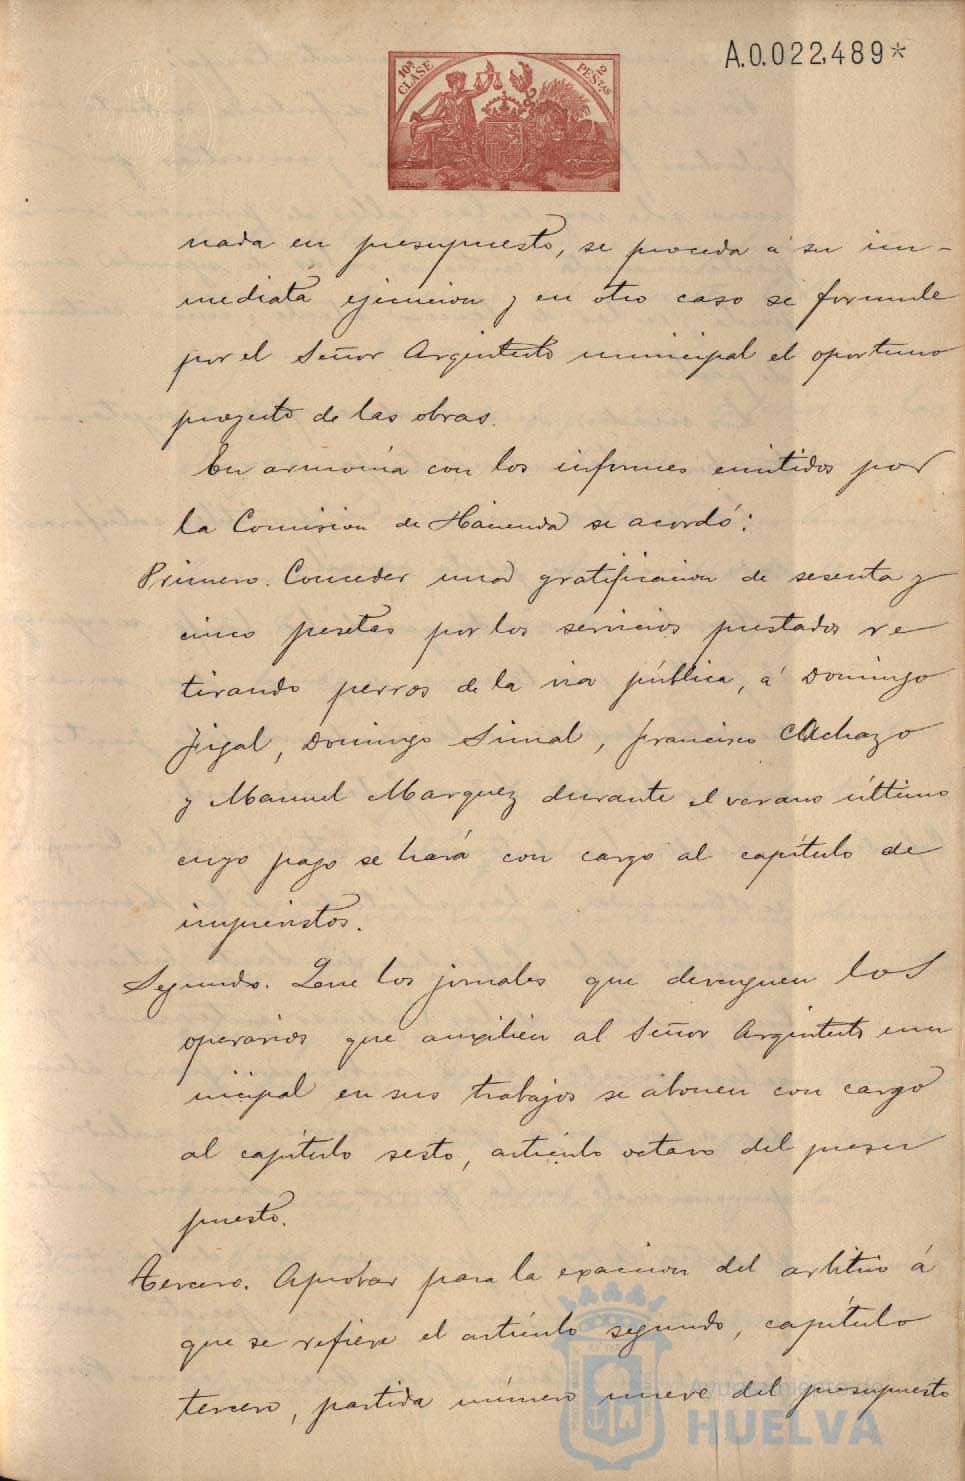 A.0.022,489*
10ª CLASE
2 PESTAS
nada en presupuesto, se proceda á su im-
mediata ejecucion y en otro caso se formule
por el Señor Arquitecto municipal el oportuno
proyecto de las obras.
En armonia con los informes emitidos por
la Comision de Hacienda se acordó:
Primero. Conceder una gratificacion de sesenta y
cinco pesetas por los servicios prestados re
tirando perros de la via pública, á Domingo
Jigal, Domingo Simal, Francisco Achazo
y Manuel Marquez durante el verano último
cuyo pago se hará con cargo al capítulo de
imprevistos.
Segundo. Que los jornales que devenguen los
operarios que auxilien al Señor Arquitecto mu
nicipal en sus trabajos se abonen con cargo
al capítulo sesto, artículo octavo del presu
puesto.
Tercero. Aprobar para la exaccion del arbitrio á
que se refiere el artículo segundo, capítulo
tercero, partida número nueve del presupuesto
Ayuntamiento de
HUELVA